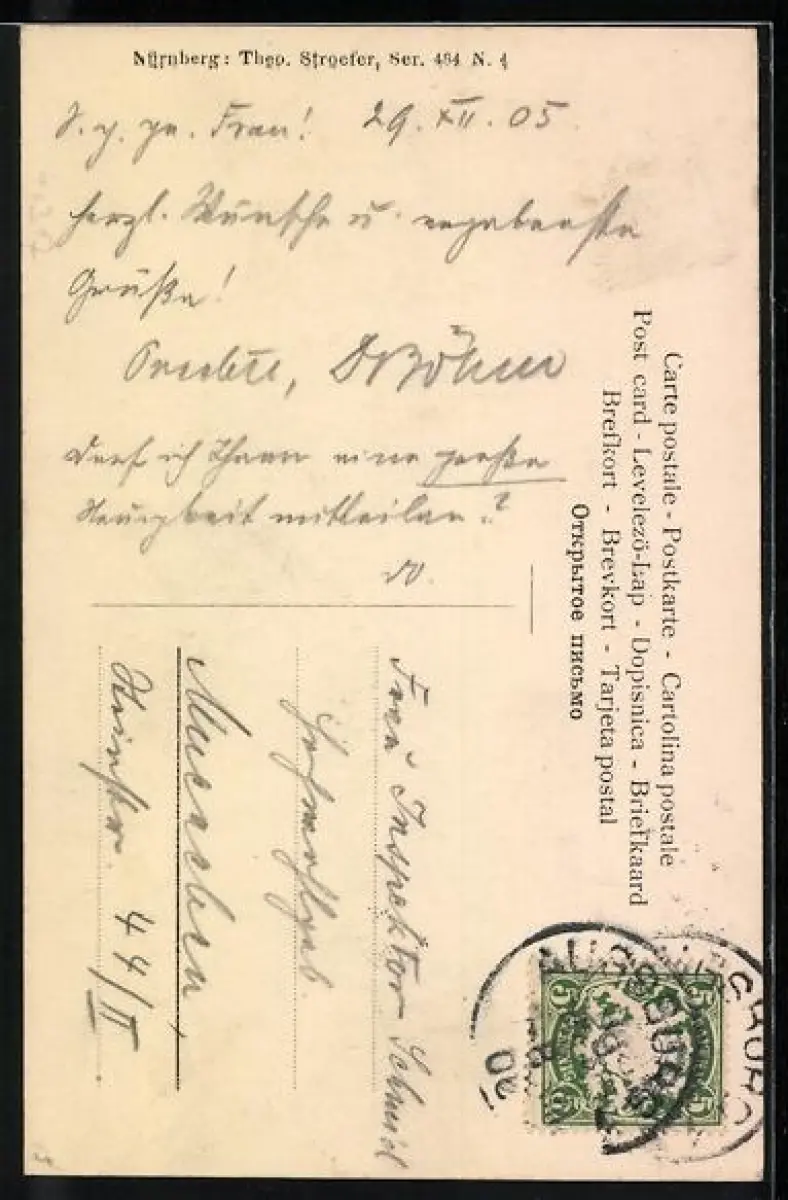 Nürnberg: Theo. Stroefer, Ser. 464 N. 4
S. g. gn. Frau! 29. XII. 05.
herzl. Wünsche u. ergebenste
Grüße!
DBöhm
Darf ich Ihnen eine große
Neuigkeit mitteilen?
Carte postale - Postkarte - Cartolina postale
Post card - Levelező-Lap - Dopisnica - Briefkaard
Brefkort - Brevkort - Tarjeta postal
Открытое письмо
Frau Inspektor Schmid
Hochwohlgeb.
Muenchen,
44/II
AUGSBURG
5 5